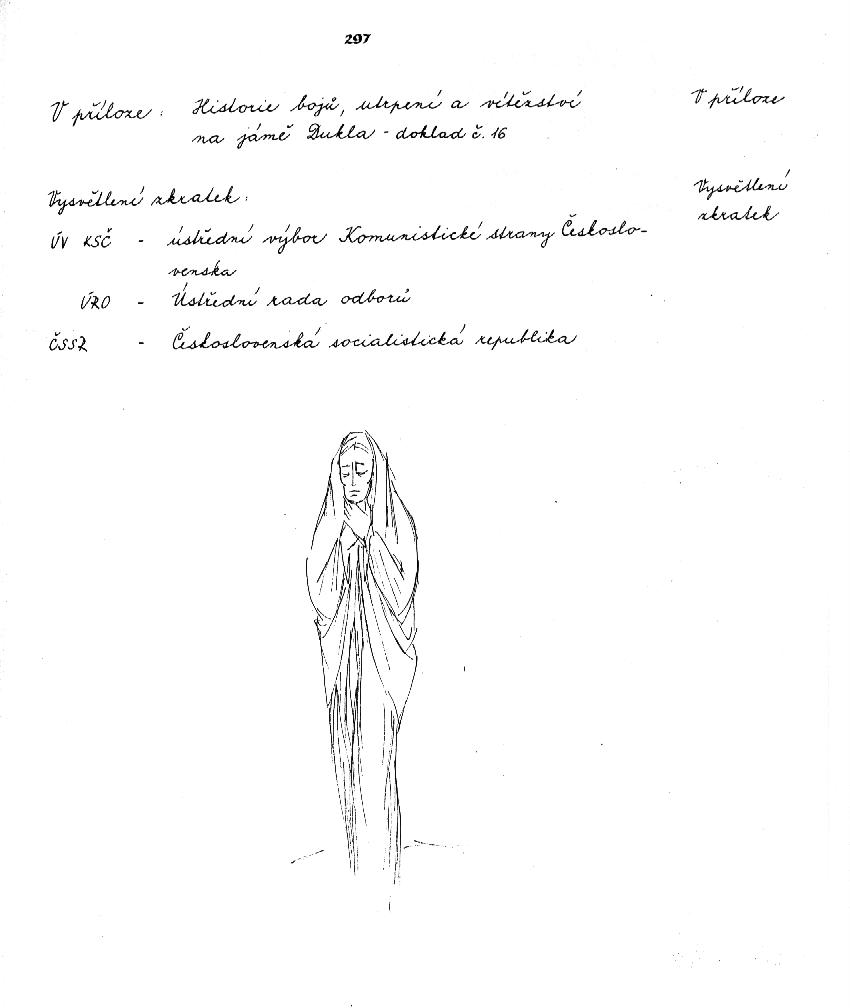 297
V příloze : Historie bojů, utrpení a vítězství
na jámě Dukla - doklad č. 16
V příloze
Vysvětlení zkratek :
Vysvětlení
zkratek
ÚV KSČ - ústřední výbor Komunistické strany Českoslo-
venska
ÚRO - Ústřední rada odborů
ČSSR - Československá socialistická republika